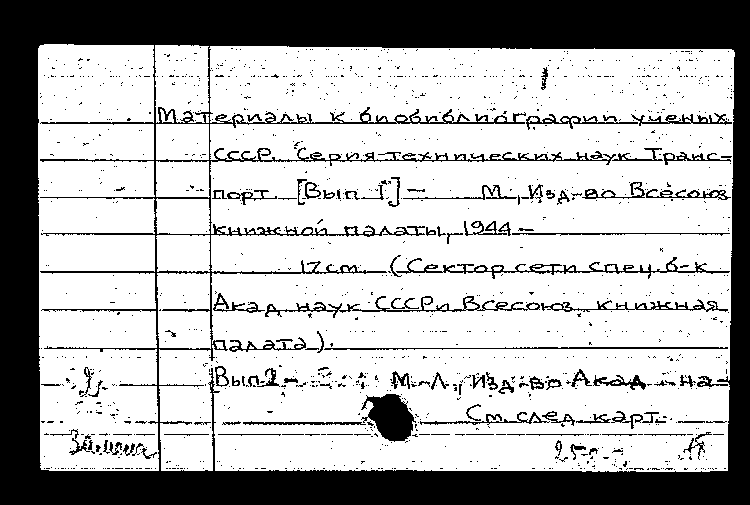 1
Материалы к биобиблиографии ученых
СССР. Серия технических наук Транс-
порт. [Вып. I] – М., Изд-во Всесоюз
книжной палаты, 1944 –
17 cm. (Сектор сети спец. б-к
Акад наук СССР и Всесоюз. книжная
палата).
[Вып. 2 – М.-Л., Изд-во Акад на-
См. след карт.
Замена